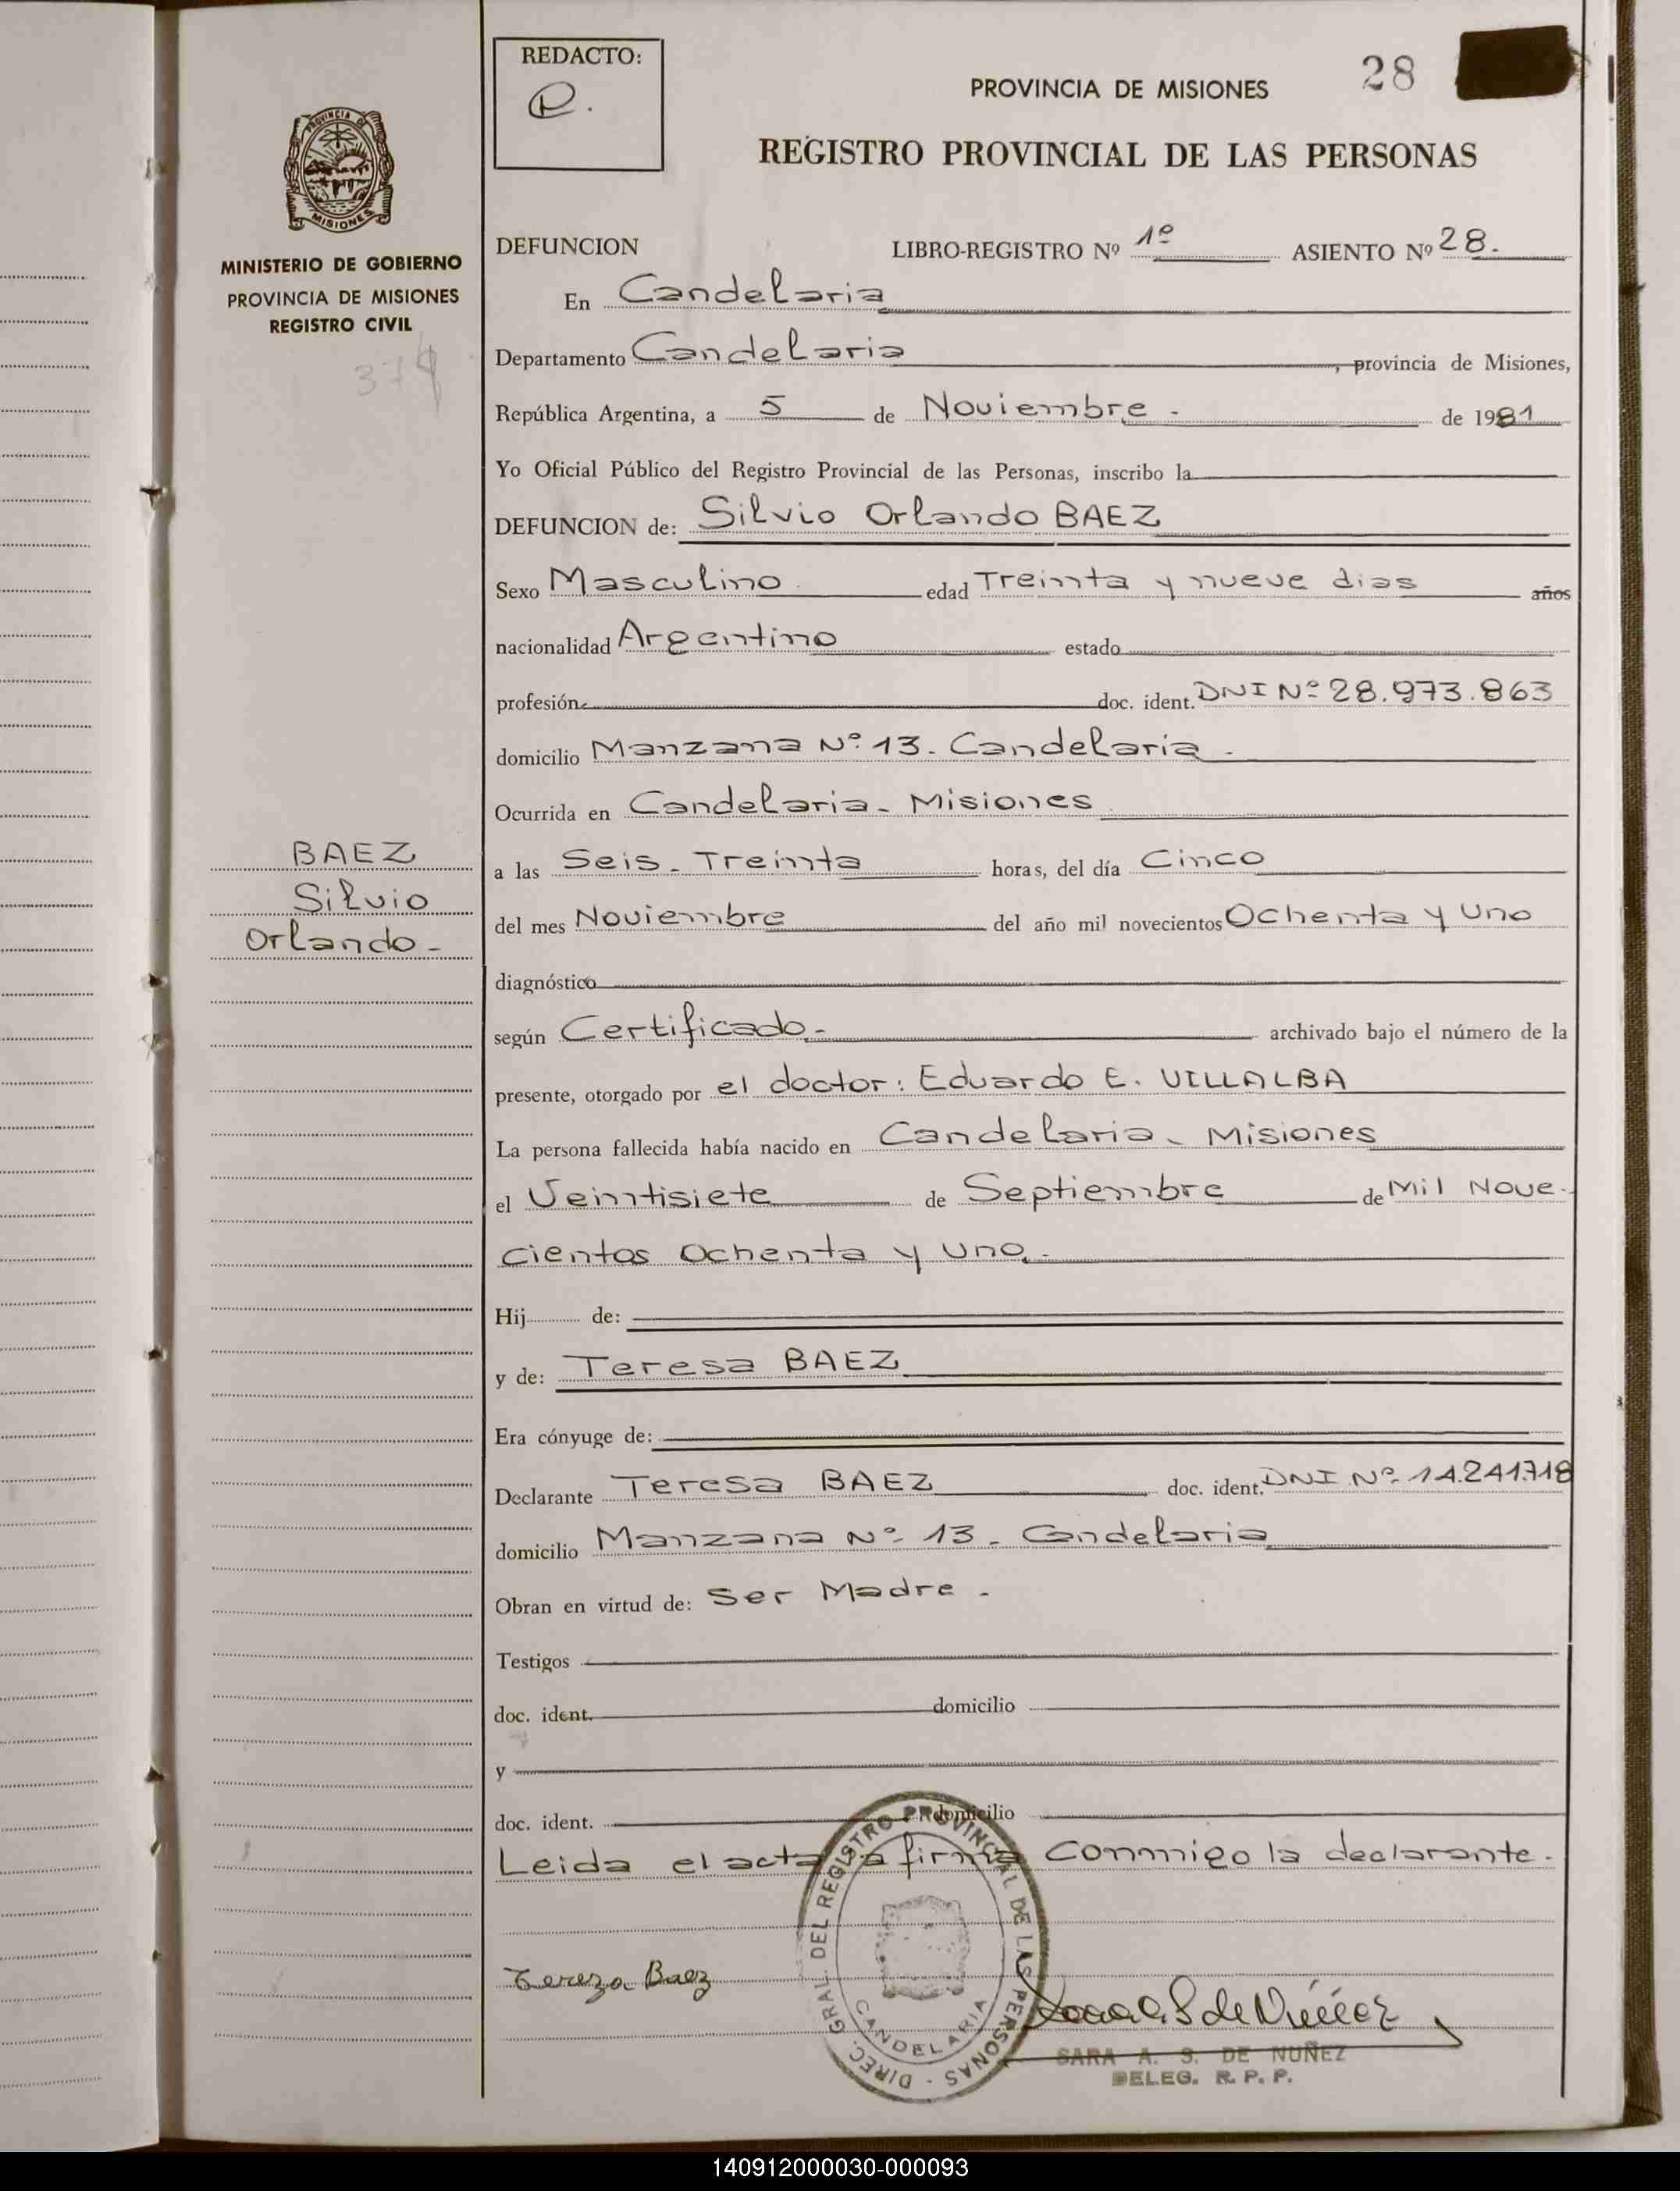 REDACTO:
PROVINCIA DE MISIONES
28
REGISTRO PROVINCIAL DE LAS PERSONAS
PROVINCIA DE
MISIONES
MINISTERIO DE GOBIERNO
PROVINCIA DE MISIONES
REGISTRO CIVIL
DEFUNCION LIBRO-REGISTRO Nº 1º ASIENTO Nº 28.
En Candelaria
Departamento Candelaria, provincia de Misiones,
República Argentina, a 5 de Noviembre - de 1981
Yo Oficial Público del Registro Provincial de las Personas, inscribo la
DEFUNCION de: Silvio Orlando BAEZ
Sexo Masculino. edad Treinta y nueve dias años
nacionalidad Argentino estado
profesión doc. ident. DNI Nº 28.973.863
domicilio Manzana Nº 13. Candelaria -
Ocurrida en Candelaria - Misiones
a las Seis - Treinta horas, del día Cinco
del mes Noviembre del año mil novecientos Ochenta y Uno
BAEZ
Silvio
Orlando -
diagnóstico
según Certificado - archivado bajo el número de la
presente, otorgado por el doctor: Eduardo E. VILLALBA
La persona fallecida había nacido en Candelaria - Misiones
el Veintisiete de Septiembre de Mil Nove-
cientos Ochenta y Uno -
Hij de:
y de: Teresa BAEZ
Era cónyuge de:
Declarante Teresa BAEZ doc. ident. DNI Nº 14.241.718
domicilio Manzana Nº 13 - Candelaria
Obran en virtud de: Ser Madre -
Testigos
doc. ident. domicilio
y
doc. ident. domicilio
Leida el acta la firma Conmigo la declarante -
DIREC. GRAL. DEL REGISTRO PROVINCIAL DE LAS PERSONAS -
CANDELARIA
Tereza Baez
SARA A. S. DE NUÑEZ
DELEG. R. P. P.
140912000030-000093